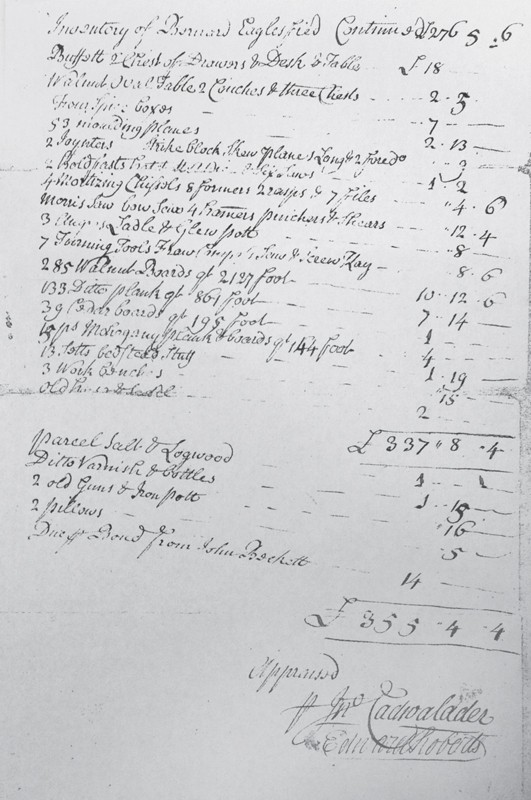 Inventory of Bernard Eaglesfied Continued £276 5 6
Buffett 2 Chest of Drawers & Desk & Table £18
Walnut Oval Table 2 Couches & three Chests 2 5
Four boxes 7
53 moulding planes 2 13
2 Joynters Strike block, Skew planes Long & 2 foreds 3
2 Holdfasts 1 2
4 Mortizing Chissols 8 formers 2 rasps & 7 files 4 6
Saw bow Saw 4 hamers pinchers & Shears 12 4
3 Ladle & Glew pott 8
7 Turning Tools Saw & Screw Kay 8 6
285 Walnut Boards qt 2127 foot 10 12 6
133 Ditto plank qt 861 foot 7 14
39 Cedar boards qt 195 foot 1
ps Mohogany plank & boards qt 144 foot 4
13 Setts bedsteds Stuff 1 19
3 Work benches 15
old 2
£ 337 8 4
parcel Salt & Logwood 1
Ditto Varnish & bottles 1 15
2 old Guns & Iron pott 16
2 pillows 5
Due Bond from John Beckett 14
£ 355 4 4
Appraised
Jno Cadwalader
Edward Roberts